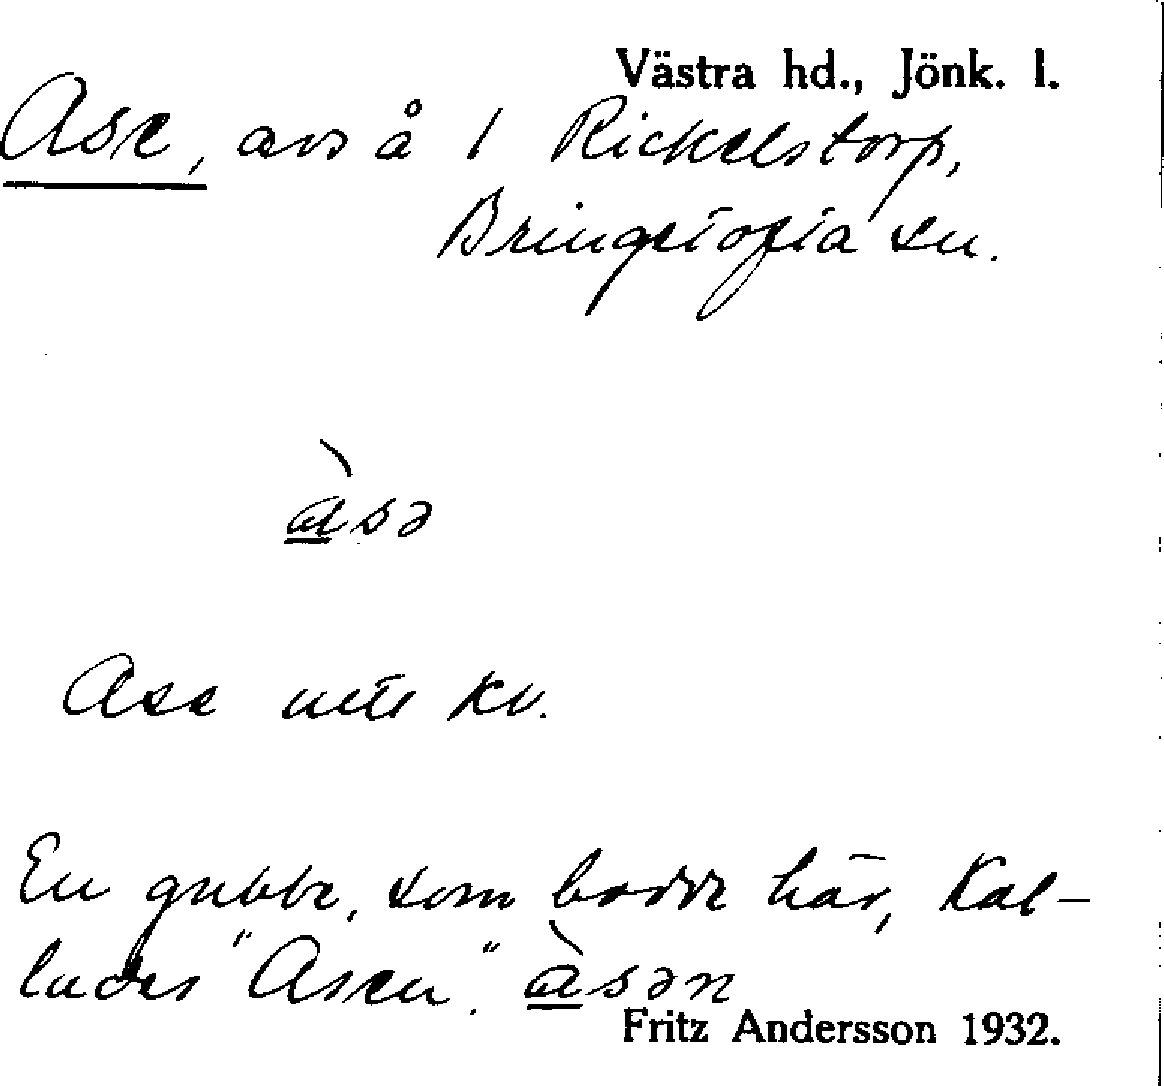 Västra hd., Jönk. l.
Ase, avs å 1 Rickelstorp,
Bringetofta sn.
à̲sə
Ase kv.
En gubbe, som bodde här, kal-
lades "Asen". à̲sən
Fritz Andersson 1932.